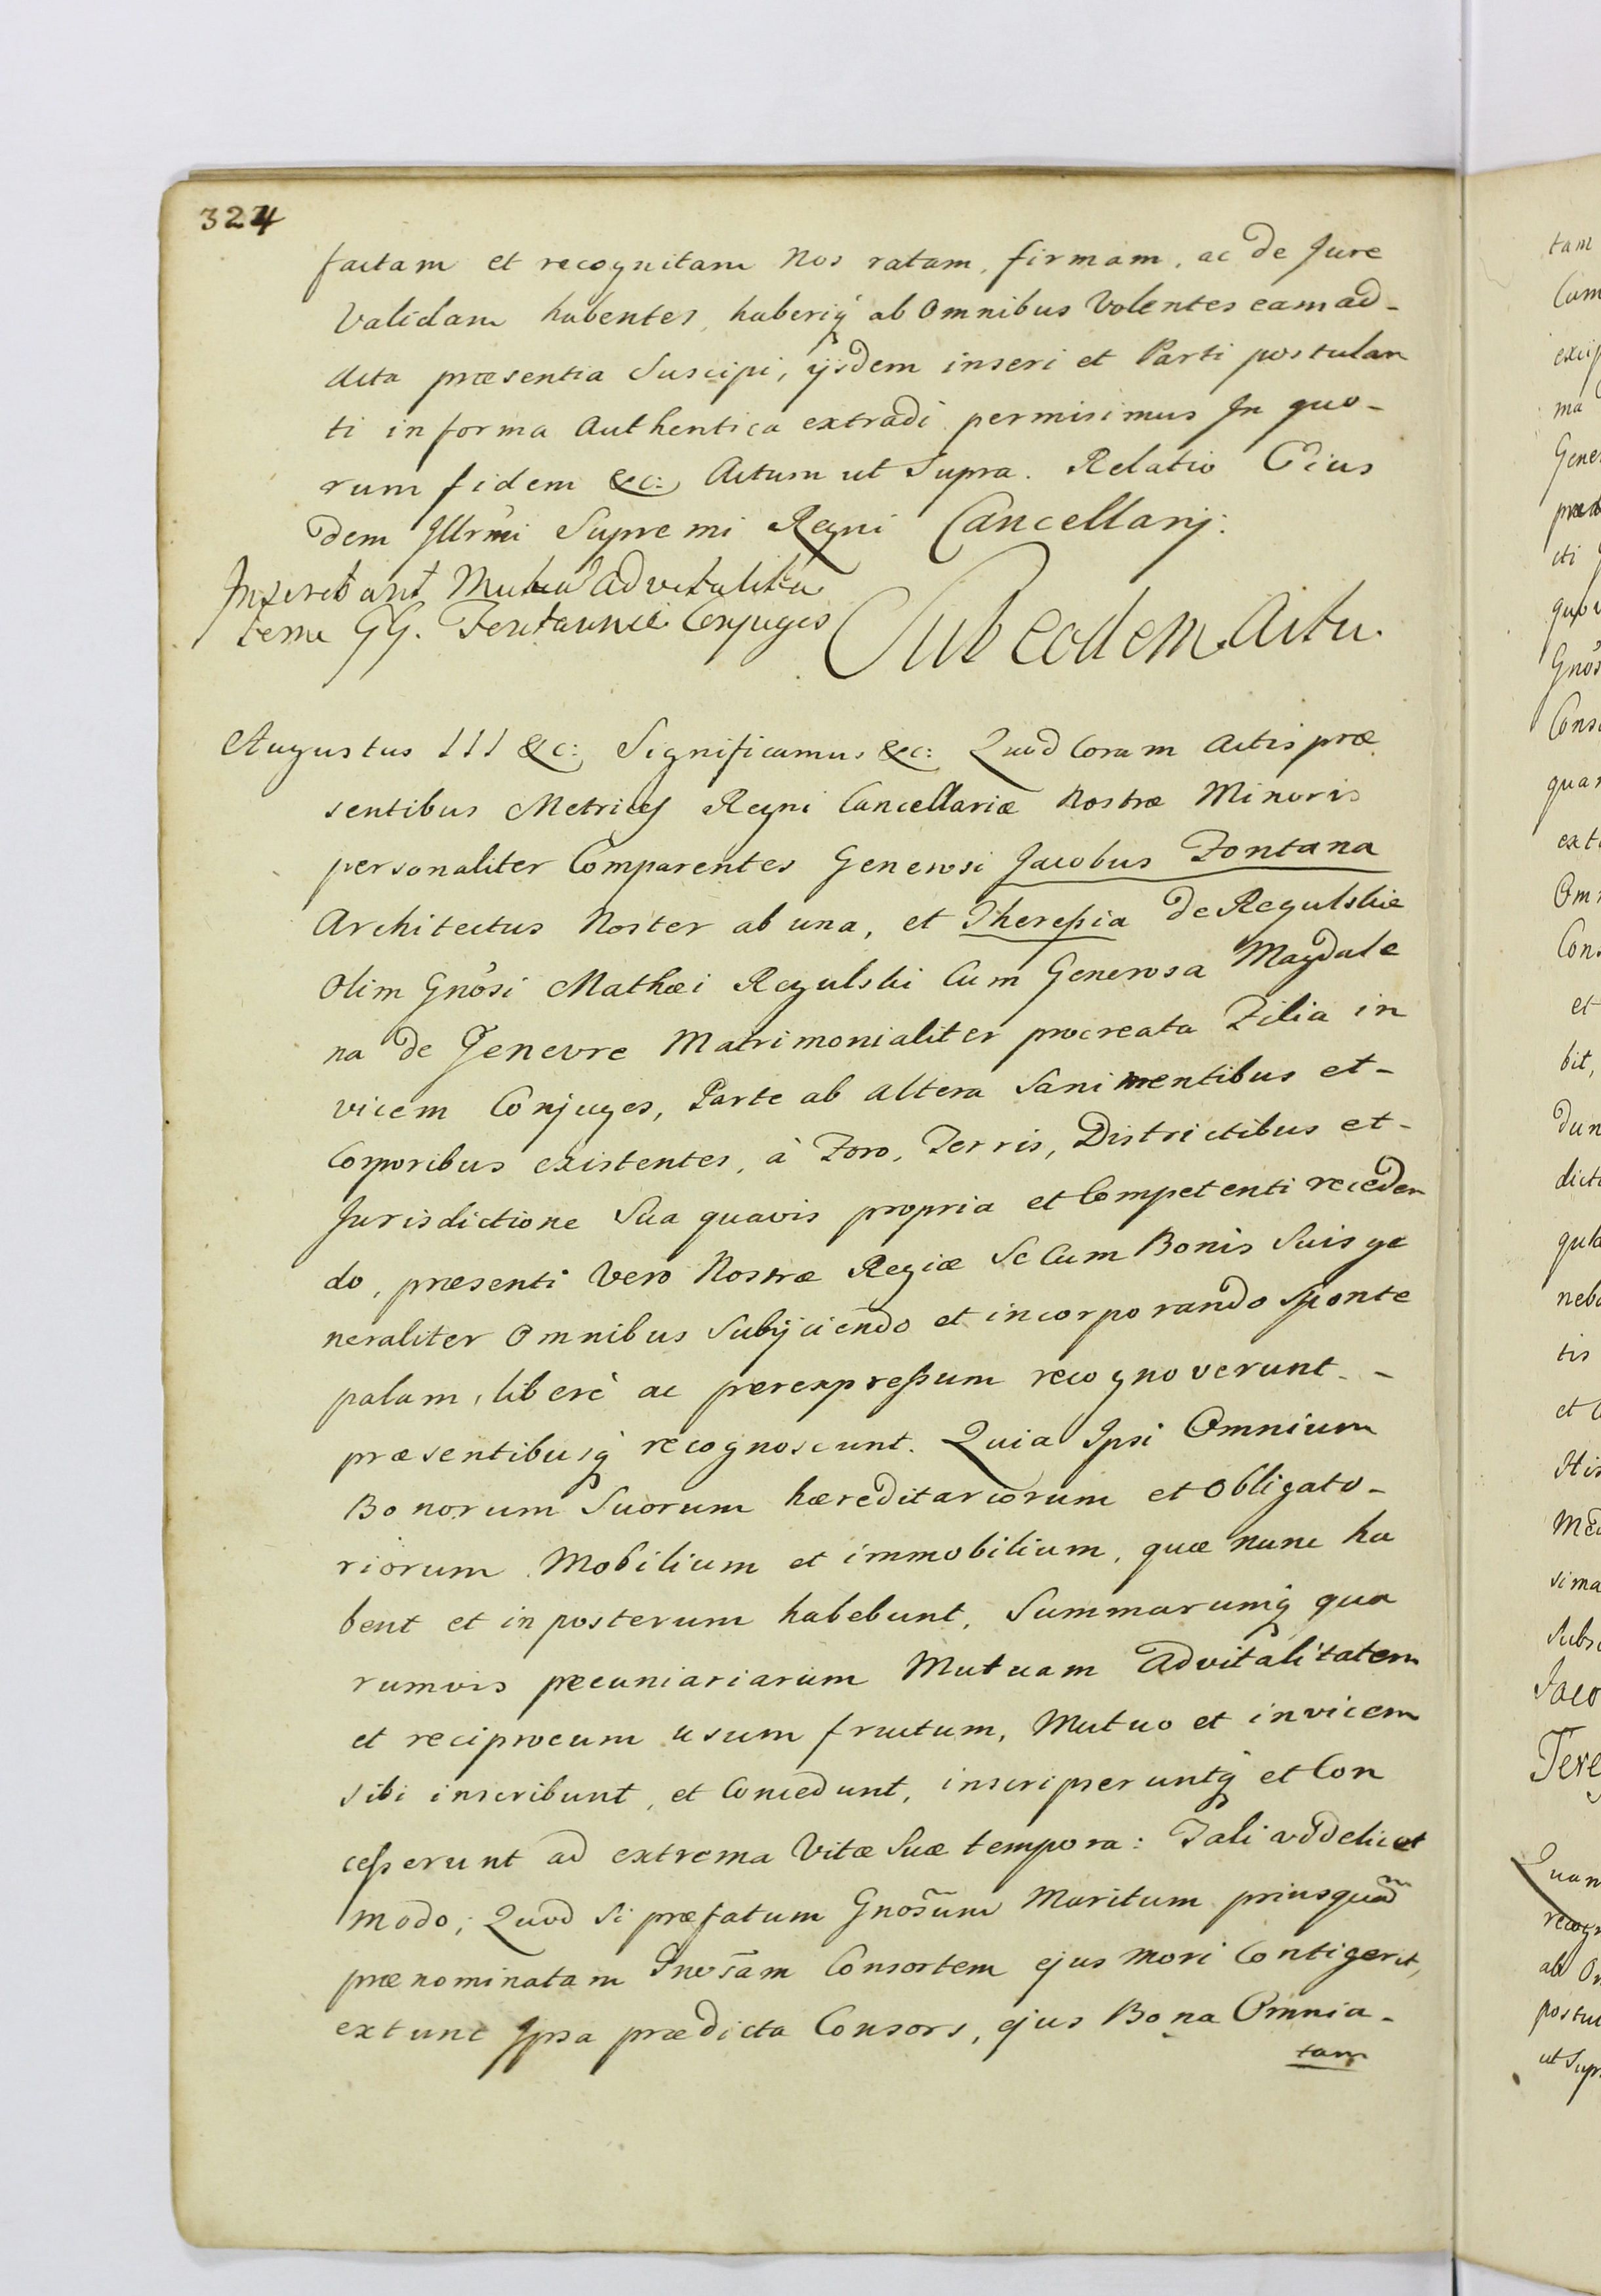 324
factam et recognitam Nos ratam, firmam, ac de Jure
Validam habentes, haberiq̃ ab Omnibus Volentes eam ad-
Acta præsentia Suscipi, ijsdem inseri et Parti postulan
ti in forma Authentica extradi permisimus In quo-
rum fidem &c: Actum ut Supra. Relatio Eius
dem Illr̃mi Supremi Regni Cancellarij.
Inscribunt Mutua advitalita
tem GG. Conjuges
Sub eodem Actu.
Augustus III &c: Significamus &c: Quod Coram Actis præ
sentibus Metrices Regni Cancellariæ Nostræ Minoris
personaliter Comparentes Generosi Jacobus Fontana
Architectus Noster ab una, et Theresia de Regulskie
Olim Gnõsi Mathæi Regulski Cum Generosa Magdale
na de Genevre Matrimonialiter procreata Filia in
vicem Conjuges, Parte ab altera Sani mentibus et-
Corporibus existentes, à Foro, Terris, Districtibus et-
Jurisdictione Sua quavis propria et Competenti receden
do, præsenti Vero Nostræ Regiæ Se Cum Bonis Suis ge
neraliter Omnibus Subijciendo et incorporando Sponte
palam, liberè ac perexpressum recognoverunt--
præsentibusq̃ recognoscunt. Quia Ipsi Omnium
Bonorum Suorum hæreditariorum et Obligato-
riorum Mobilium et immobilium, quæ nunc ha
bent et in posterum habebunt, Summarumq̃ qua
rumvis pecuniariarum Mutuam Advitalitatem
et reciprocum usum fructum, Mutuo et invicem
sibi inscribunt, et Concedunt, inscripseruntq̃ et Con
cesserunt ad extrema Vitæ Suæ tempora: Tali
modo; Quod Si præfatum Gnos̃um Maritum priusquam̃
prænominatam Gnos̃am Consortem ejus mori Contigerit,
extunc Ipsa prædicta Consors, ejus Bona Omnia-
tam